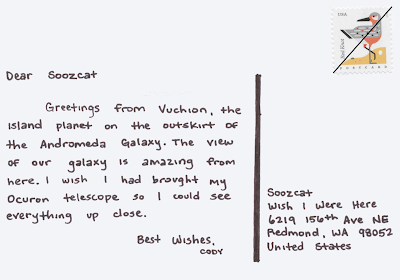 USA
Red Knot
POSTCARD
Dear Soozcat
Greetings from Vuchion, the
island planet on the outskirt of
the Andromeda Galaxy. The view
of our galaxy is amazing from
here. I wish I had brought my
Ocuron telescope so I could see
everything up close.
Best Wishes,
CODY
Soozcat
Wish I Were Here
6219 156th Ave NE
Redmond, WA 98052
United States